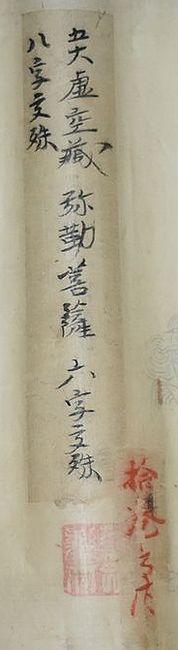 五大虚空藏 弥勒菩薩 六字文殊
八字文殊
拾